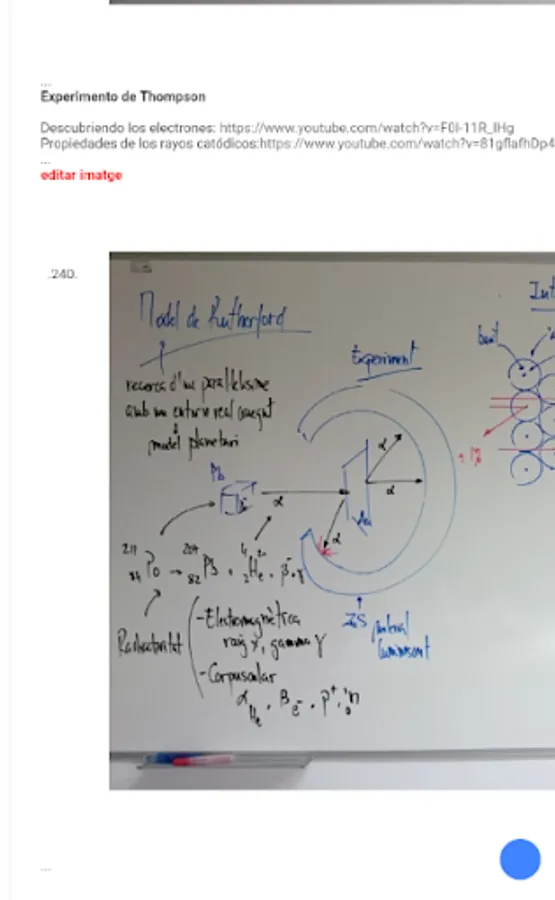 ...
Experimento de Thompson
Descubriendo los electrones: https://www.youtube.com/watch?v=F0I-11R_IHg
Propiedades de los rayos catódicos:https://www.youtube.com/watch?v=81gflafhDp4
...
editar imatge
.240.
Model de Rutherford
Experiment
recerca d'un paral·lelisme
amb un entorn real conegut
model planetari
buit
Pb
α
α
α
α
Au
211 84 Po → 207 82 Pb + 4 2 He 2+ β- γ
Radioactivitat
- Electromagnètica
raig γ, gamma γ
- Corpuscular
α He, β e-, p+, 1 0 n
ZnS material
luminiscent
...